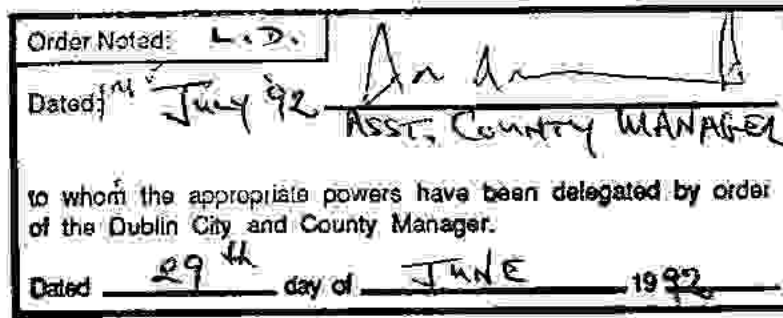 Order Noted: L.D.
Dated: 1st July '92
ASST. COUNTY MANAGER
to whom the appropriate powers have been delegated by order
of the Dublin City and County Manager.
Dated 29th day of JUNE 1992